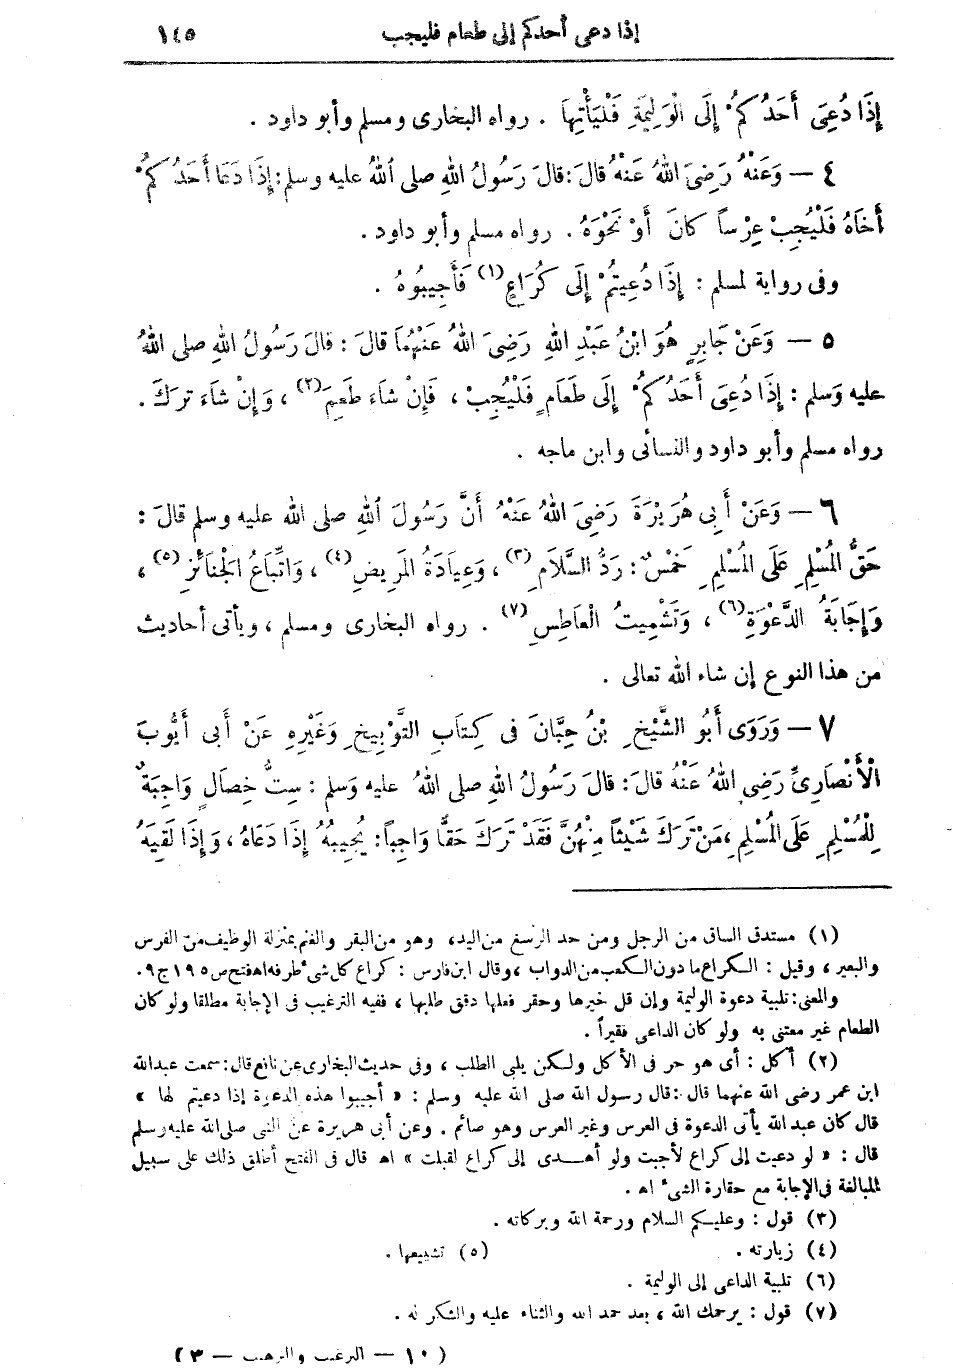 إذا دعى أحدكم إلى طعام فليجب ١٤٥
إِذَا دُعِىَ أَحَدُكُمْ إِلَى الْوَلِيمَةِ فَلْيَأْتِهَا . رواه البخارى ومسلم وأبو داود .
٤ — وَعَنْهُ رَضِىَ اللهُ عَنْهُ قالَ : قالَ رَسُولُ اللهِ صلى اللهُ عليه وسلم : إِذَا دَعَا أَحَدُكُمْ
أَخَاهُ فَلْيُجِبْ عِرْساً كانَ أَوْ نَحْوَهُ . رواه مسلم وأبو داود .
وفى رواية لمسلم : إِذَا دُعِيتُمْ إِلَى كُرَاعٍ (١) فَأَجِيبُوهُ .
٥ — وَعَنْ جَابِرٍ هُوَ ابْنُ عَبْدِ اللهِ رَضِىَ اللهُ عَنْهُمَا قالَ : قالَ رَسُولُ اللهِ صلى اللهُ
عليه وَسلم : إِذَا دُعِىَ أَحَدُكُمْ إِلَى طَعَامٍ فَلْيُجِبْ ، فَإِنْ شَاءَ طَعِمَ (٢) ، وَإِنْ شَاءَ تركَ .
رواه مسلم وأبو داود والنسائى وابن ماجه .
٦ — وَعَنْ أَبِى هُرَيْرَةَ رَضِىَ اللهُ عَنْهُ أَنَّ رَسُولَ اللهِ صلى الله عليه وسلم قالَ :
حَقُّ الْمُسْلِمِ عَلَى الْمُسْلِمِ خَمْسٌ : رَدُّ السَّلاَمِ (٣) ، وَعِيَادَةُ الْمَرِيضِ (٤) ، وَاتِّبَاعُ الْجَنَائِزِ (٥) ،
وَإِجَابَةُ الدَّعْوَةِ (٦) ، وَتَشْمِيتُ الْعَاطِسِ (٧) . رواه البخارى ومسلم ، ويأتى أحاديث
من هذا النوع إن شاء الله تعالى .
٧ — وَرَوَى أَبُو الشَّيْخِ بْنُ حِبَّانَ فى كِتَابِ التَّوْبِيخِ وَغَيْرِهِ عَنْ أَبى أَيُّوبَ
الْأَنْصَارِىِّ رَضِى اللهُ عَنْهُ قالَ : قالَ رَسُولُ اللهِ صلى اللهُ عليه وَسلم : سِتُّ خِصَالٍ وَاجِبَةٌ
لِلْمُسْلِمِ عَلَى الْمُسْلِمِ ، مَنْ تَرَكَ شَيْئاً مِنْهُنَّ فَقَدْ تَرَكَ حَقًّا وَاجِباً : يُجِيبُهُ إِذَا دَعَاهُ ، وَإِذَا لَقِيَهُ
(١) مستدق الساق من الرجل ومن حد الرسغ من اليد ، وهو من البقر والغنم بمنزلة الوظيف من الفرس
والبعير ، وقيل : الكراع ما دون الكعب من الدواب ، وقال ابن فارس : كراع كل شىء طرفه اه فتح ص ١٩٥ ج ٩ .
والمعنى : تلبية دعوة الوليمة وإن قل خيرها وحقر فعلها دقق طلبها ، ففيه الترغيب فى الإجابة مطلقا ولو كان
الطعام غير معتنى به ولو كان الداعى فقيراً .
(٢) أكل : أى هو حر فى الأكل ولكن يلبى الطلب ، وفى حديث البخارى عن نافع قال : سمعت عبد الله
ابن عمر رضى الله عنهما قال : قال رسول الله صلى الله عليه وسلم : « أجيبوا هذه الدعوة إذا دعيتم لها »
قال كان عبد الله يأتى الدعوة فى العرس وغير العرس وهو صائم . وعن أبى هريرة عن النبى صلى الله عليه وسلم
قال : « لو دعيت إلى كراع لأجبت ولو أهدى إلى كراع لقبلت » اه قال فى الفتح أطلق ذلك على سبيل
المبالغة فى الإجابة مع حقارة الشىء اه .
(٣) قول : وعليكم السلام ورحمة الله وبركاته .
(٤) زيارته . (٥) تشييعها .
(٦) تلبية الداعى إلى الوليمة .
(٧) قول : يرحمك الله ، بعد حمد الله والثناء عليه والشكر له .
(١٠ — الترغيب والترهيب — ٣)